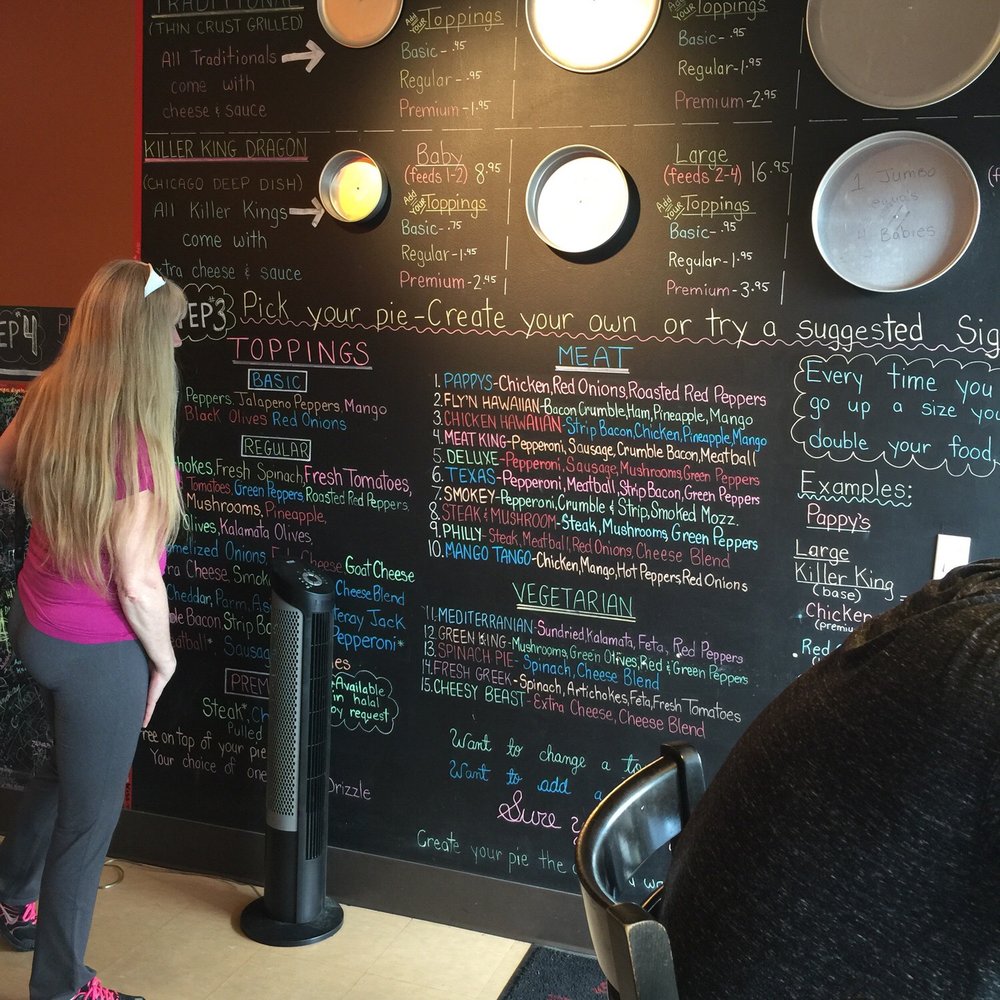 TRADITIONAL
(THIN CRUST GRILLED)
All Traditionals
come with
cheese & sauce
Add Your Toppings
Basic - .45
Regular - .95
Premium - 1.95
Add Your Toppings
Basic - .95
Regular - 1.95
Premium - 2.95
KILLER KING DRAGON
(CHICAGO DEEP DISH)
All Killer Kings
come with
extra cheese & sauce
Baby
(feeds 1-2) 8.95
Add Your Toppings
Basic - .75
Regular - 1.45
Premium - 2.45
Large
(feeds 2-4) 16.95
Add Your Toppings
Basic - .95
Regular - 1.95
Premium - 3.95
1 Jumbo
equals
4 Babies
EP #4
EP #3 Pick your pie - Create your own or try a suggested Sig
TOPPINGS
BASIC
Peppers, Jalapeno Peppers, Mango
Black Olives Red Onions
REGULAR
okes, Fresh Spinach, Fresh Tomatoes,
Tomatoes, Green Peppers, Roasted Red Peppers,
Mushrooms, Pineapple,
Olives, Kalamata Olives,
melized Onions, Cheese Goat Cheese
ra Cheese, Smoke Cheese Blend
heddar, Parm, As teray Jack
le Bacon, Strip Bac Pepperoni*
eatball* Sausag
PREM
Steak*, Ch
Pulled
ree on top of your pie
Your choice of one
Drizzle
*Available
in halal
by request
MEAT
1. PAPPYS - Chicken, Red Onions, Roasted Red Peppers
2. FLY'N HAWAIIAN - Bacon Crumble, Ham, Pineapple, Mango
3. CHICKEN HAWAIIAN - Strip Bacon, Chicken, Pineapple, Mango
4. MEAT KING - Pepperoni, Sausage, Crumble Bacon, Meatball
5. DELUXE - Pepperoni, Sausage, Mushrooms, Green Peppers
6. TEXAS - Pepperoni, Meatball, Strip Bacon, Green Peppers
7. SMOKEY - Pepperoni, Crumble & Strip, Smoked Mozz.
8. STEAK & MUSHROOM - Steak, Mushrooms, Green Peppers
9. PHILLY - Steak, Meatball, Red Onions, Cheese Blend
10. MANGO TANGO - Chicken, Mango, Hot Peppers, Red Onions
VEGETARIAN
11. MEDITERRANIAN - Sundried, Kalamata, Feta, Red Peppers
12. GREEN KING - Mushrooms, Green Olives, Red & Green Peppers
13. SPINACH PIE - Spinach, Cheese Blend
14. FRESH GREEK - Spinach, Artichokes, Feta, Fresh Tomatoes
15. CHEESY BEAST - Extra Cheese, Cheese Blend
Want to change a to
Want to add a
Sure
Create your pie the
Every time you
go up a size you
double your food,
Examples:
Pappy's
Large
Killer King
(base)
Chicken
(premium
Red